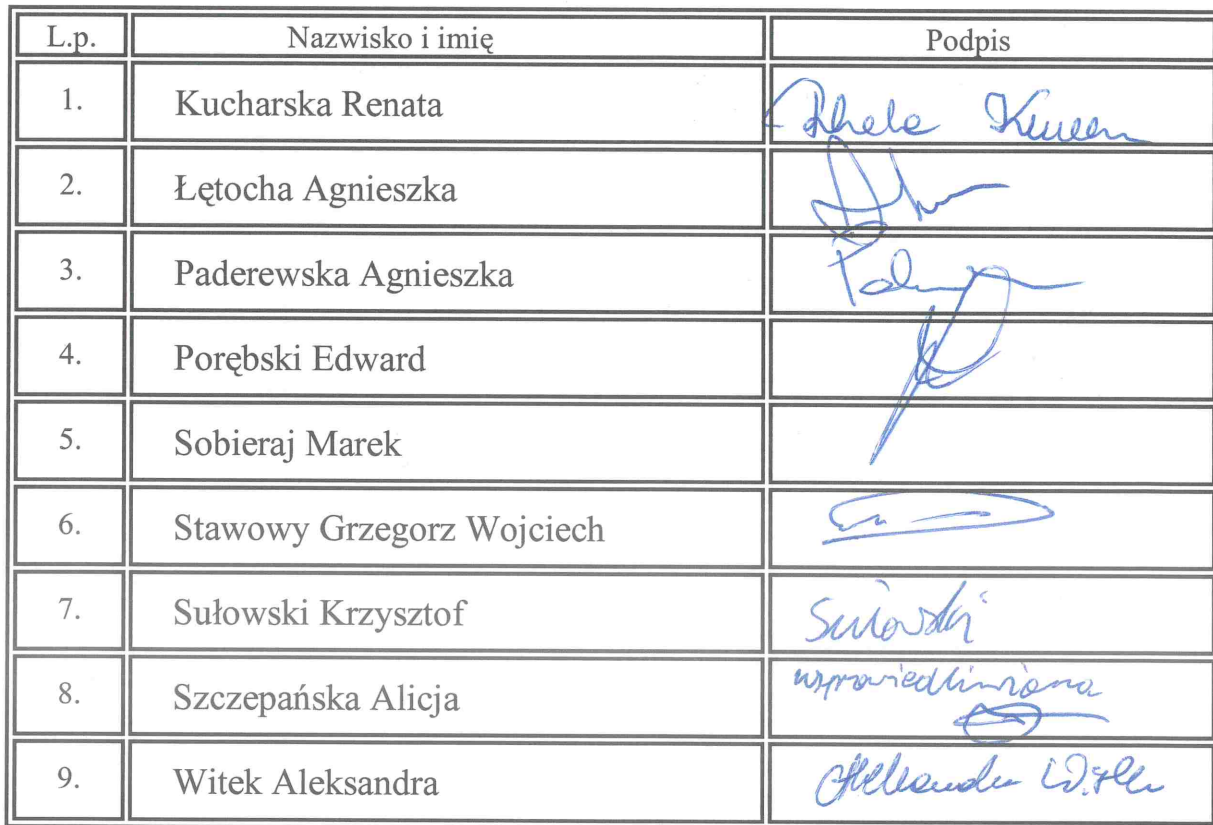 L.p. Nazwisko i imię Podpis
1. Kucharska Renata
2. Łętocha Agnieszka
3. Paderewska Agnieszka
4. Porębski Edward
5. Sobieraj Marek
6. Stawowy Grzegorz Wojciech
7. Sułowski Krzysztof Sułowski
8. Szczepańska Alicja usprawiedliwiona
9. Witek Aleksandra Aleksandra Witek